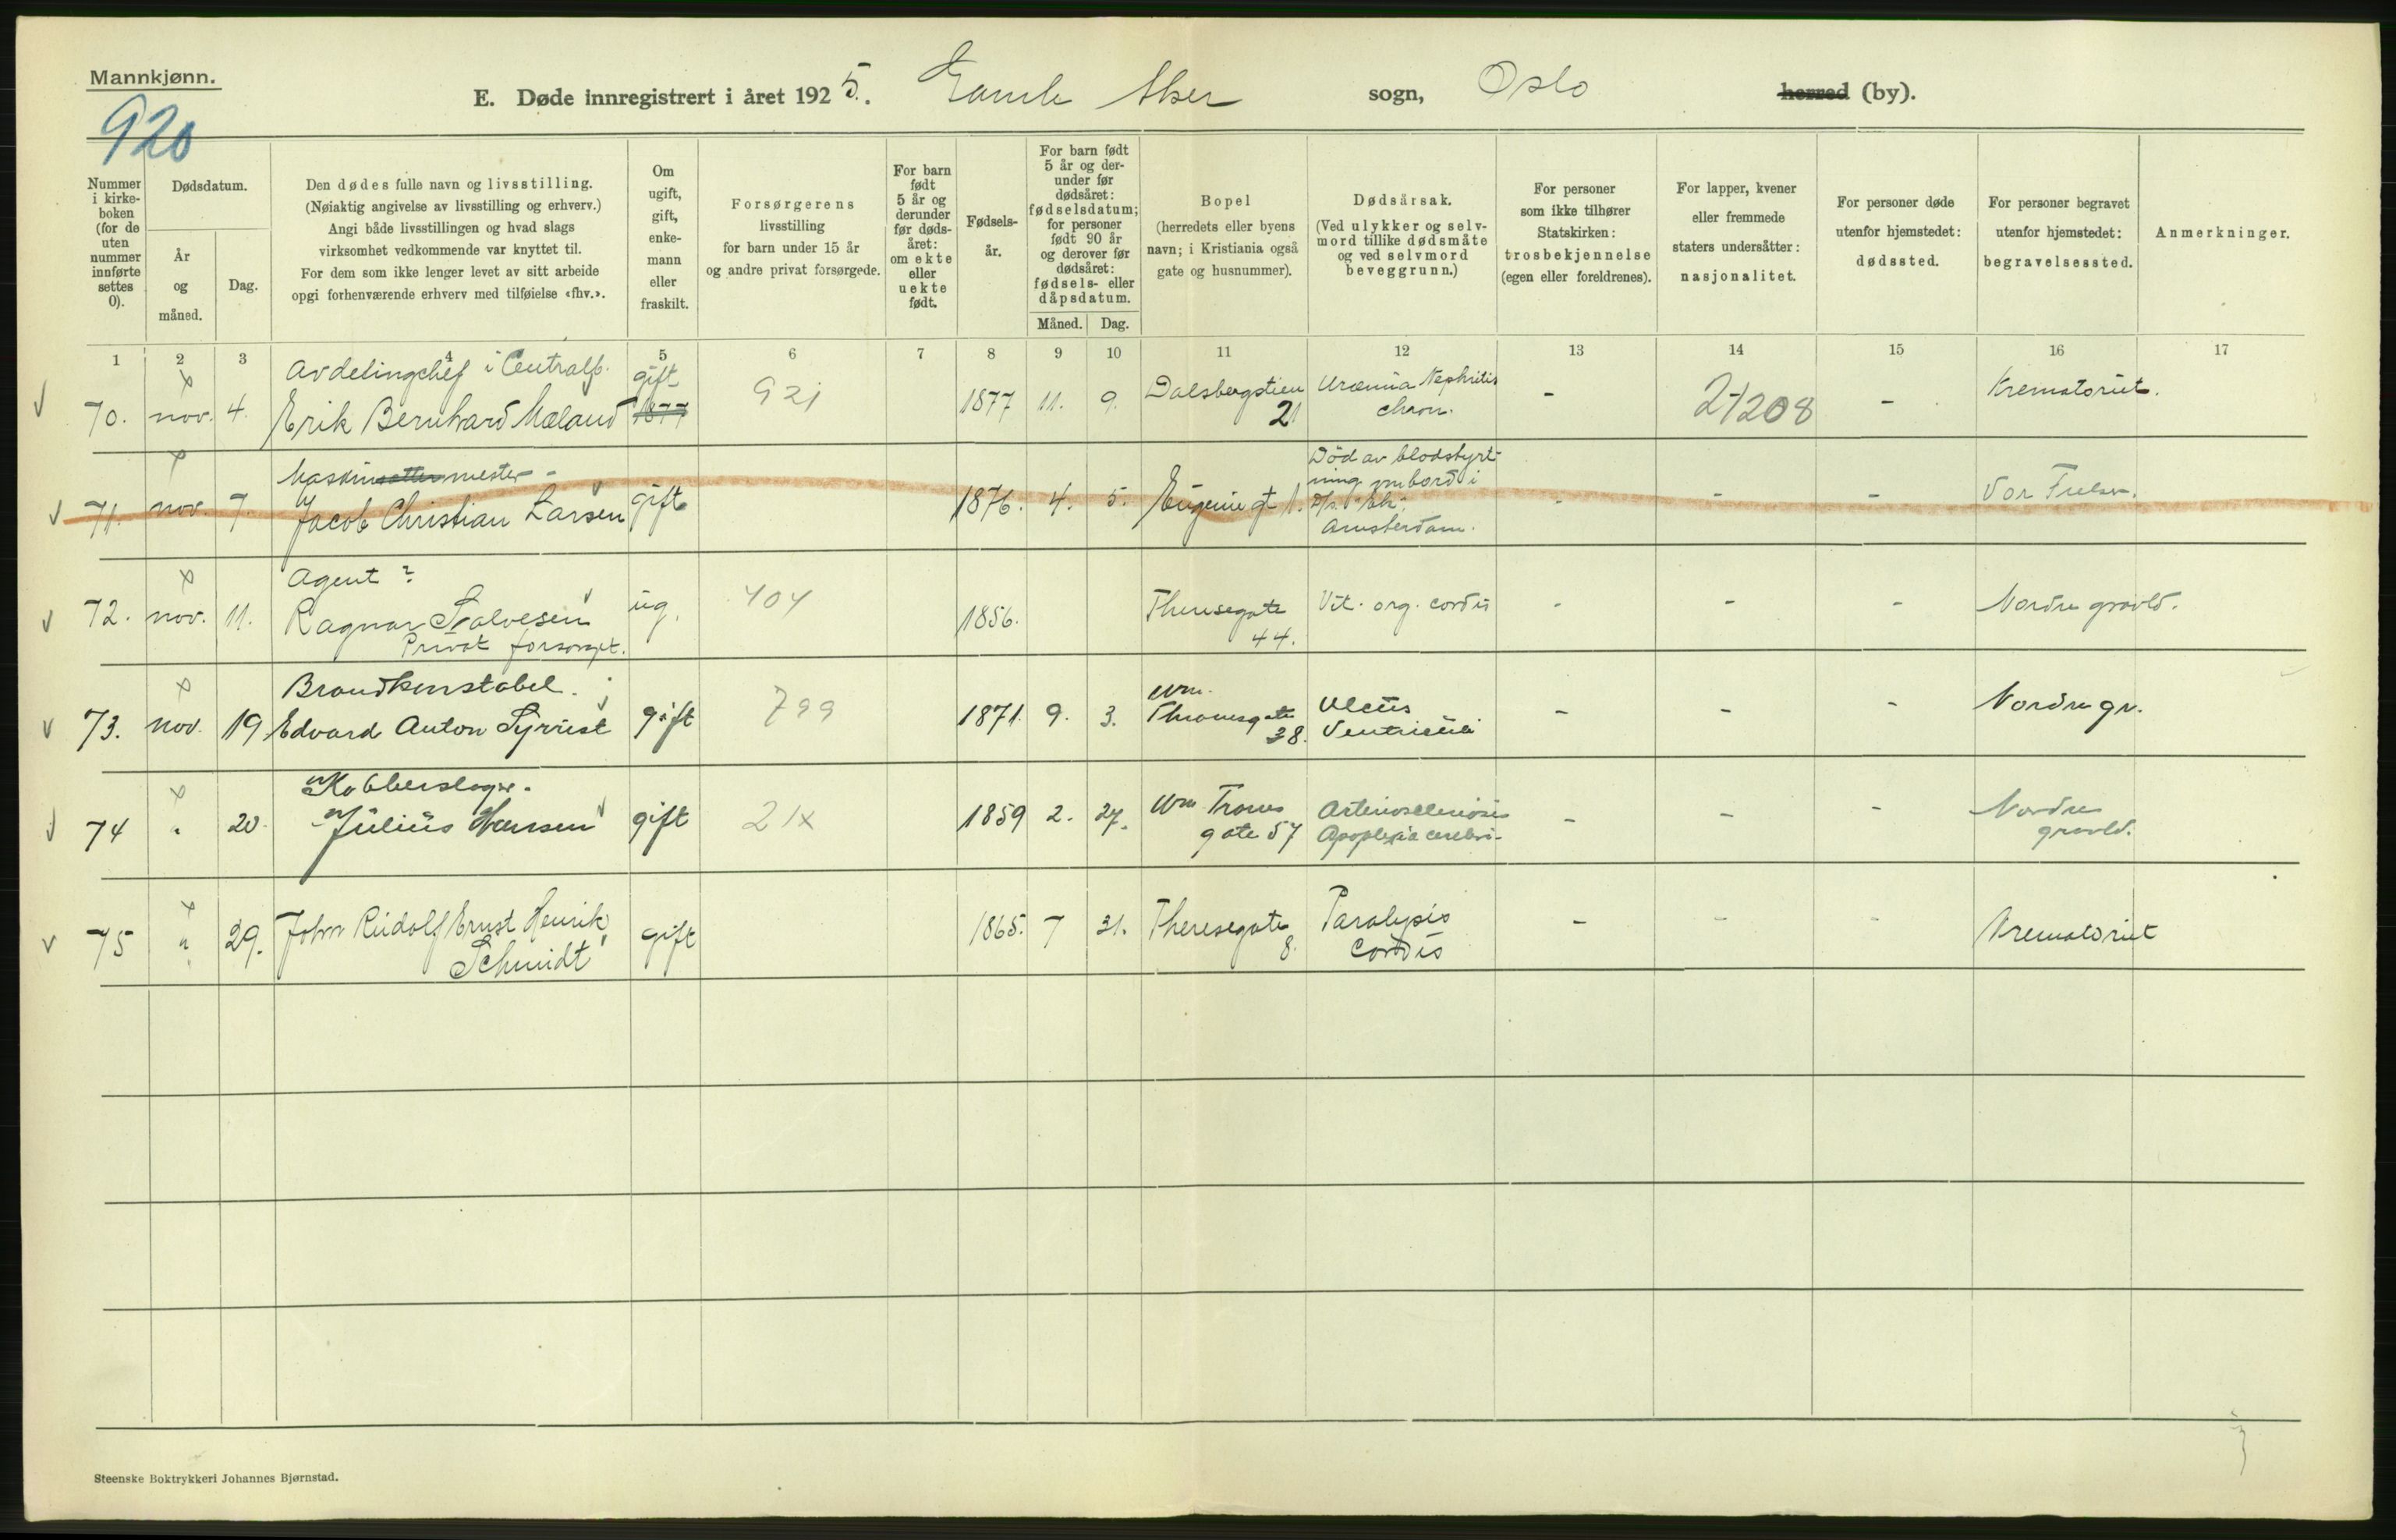 Mannkjønn.
920
E. Døde innregistrert i året 1925. Gamle Aker sogn, Oslo herred (by).
Nummer i kirke- boken (for de uten nummer innførte settes 0).
Dødsdatum.
År og måned.
Dag.
Den dødes fulle navn og livsstilling.
(Nøiaktig angivelse av livsstilling og erhverv.)
Angi både livsstillingen og hvad slags
virksomhet vedkommende var knyttet til.
For dem som ikke lenger levet av sitt arbeide
opgi forhenværende erhverv med tilføielse «fhv.».
Om ugift, gift, enke- mann eller fraskilt.
Forsørgerens
livsstilling
for barn under 15 år
og andre privat forsørgede.
For barn født 5 år og derunder før døds- året: om ekte eller uekte født.
Fødsels- år.
For barn født 5 år og der- under før dødsåret: fødselsdatum; for personer født 90 år og derover før dødsåret: fødsels- eller dåpsdatum.
Måned. Dag.
Bopel
(herredets eller byens
navn; i Kristiania også
gate og husnummer).
Dødsårsak.
(Ved ulykker og selv-
mord tillike dødsmåte
og ved selvmord
beveggrunn.)
For personer
som ikke tilhører
Statskirken:
trosbekjennelse
(egen eller foreldrenes).
For lapper, kvener
eller fremmede
staters undersåtter:
nasjonalitet.
For personer døde
utenfor hjemstedet:
dødssted.
For personer begravet
utenfor hjemstedet:
begravelsessted.
Anmerkninger.
1 2 3 4 5 6 7 8 9 10 11 12 13 14 15 16 17
Avdelingchef i Centralf.
70. nov. 4. Erik Bernhard Mæland gift 1877 921 1877 11. 9. Dalsbergstien 21 Uræmia Nephritis chron. - 2+208 - Krematoriet.
Maskinmester
71. nov. 7. Jacob Christian Larsen gift 1876. 4. 5. Eugenie gt 1. Død av blodstyrt-
ning ombord i
Amsterdam. - - - Vor Frelser.
Agent ?
72. nov. 11. Ragnar Salvesen ug. 404 1856. Theresegate 44. Vit. org. cordis - - - Nordre gravld.
Privat forsørget.
Brandkonstabel.
73. nov. 19 Edvard Anton Syrrist gift 799 1871. 9. 3. Wm. Thranesgate 38. Ulcus Ventriculi - - - Nordre gr.
Kobberslager.
74 " 20. Julius Hansen gift 21x 1859 2. 27. Wm Tranes gate 57 Arteriosclerosis Apoplexia cerebri - - - Nordre gravld.
75 " 29. John Rudolf Ernst Henrik Schmidt gift 1865. 7 31. Theresegate 8. Paralysis Cordis - - - Krematoriet
Steenske Boktrykkeri Johannes Bjørnstad.